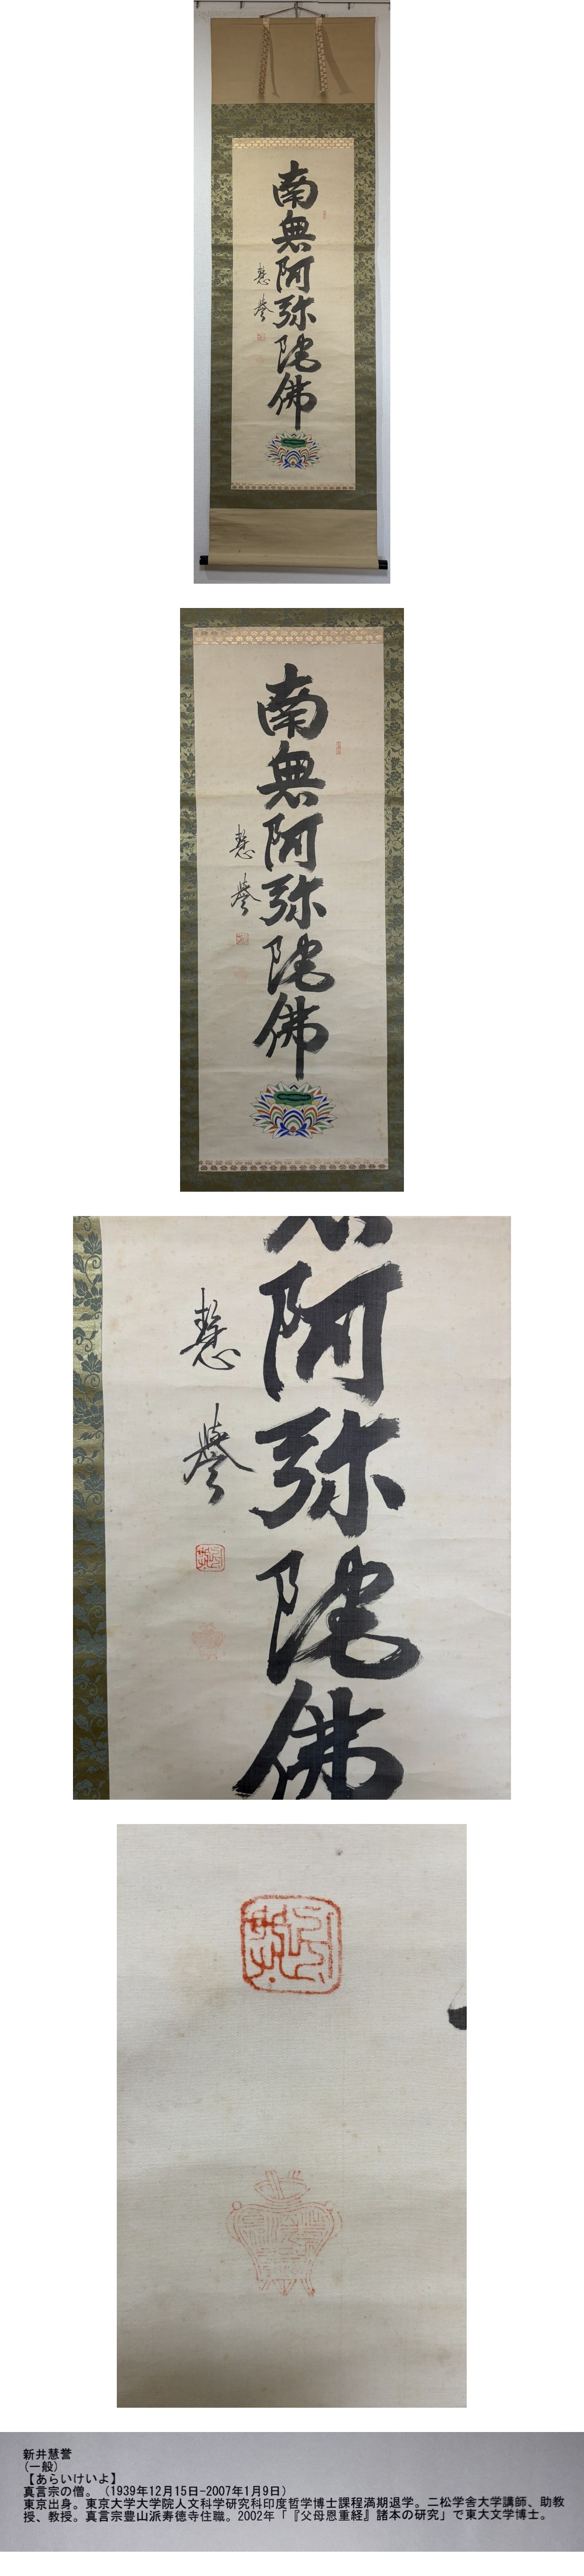 南無阿弥陀佛
慧譽
南無阿弥陀佛
慧譽
阿弥陀佛
慧譽
新井慧誉
(一般)
【あらいけいよ】
真言宗の僧。(1939年12月15日-2007年1月9日)
東京出身。東京大学大学院人文科学研究科印度哲学博士課程満期退学。二松学舎大学講師、助教
授、教授。真言宗豊山派寿徳寺住職。2002年「『父母恩重経』諸本の研究」で東大文学博士。